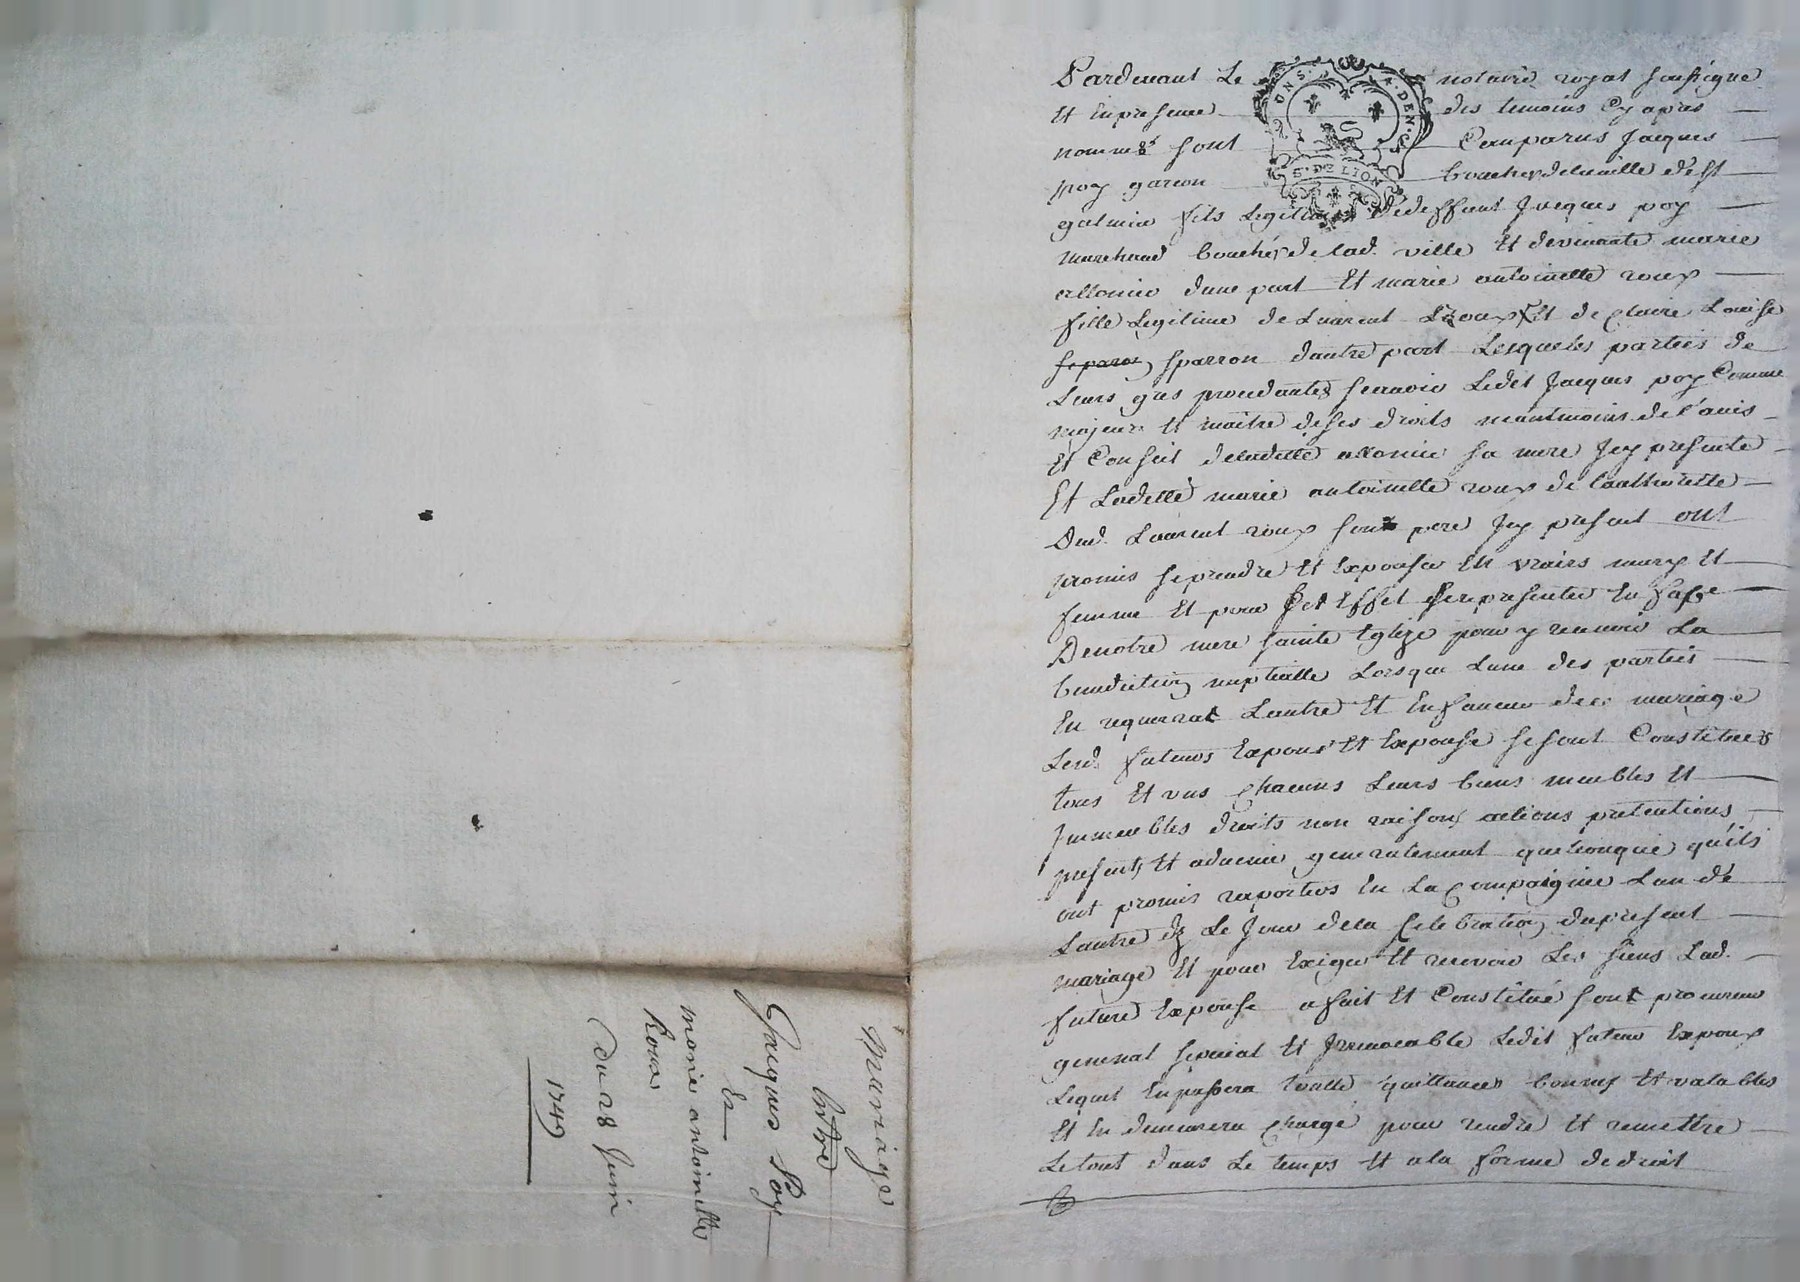 Pardevant Le notaire royal soussigne
Et En presence des temoins Cy apres
nommés sont Comparus Jacques
poy garcon boucher de la ville de st
galmier fils Legitime de deffunt Jacques poy
marchand boucher de lad. ville Et de vivante marie
allonier dune part Et marie antoinette roux
fille Legitime de Laurent Lroux Et de Claire Louise
sparron dautre part Lesquelles parties de
Leurs gres procedantes scavoir Ledit Jacques poy Comme
majeur Et maitre de ses droits neantmoins de l'avis
Et Conseil de laditte allonier sa mere Jcy presente
Et Laditte marie antoinette roux de Lauthoritte
Dud. Laurent roux son pere Jcy present ont
promis se prendre Et Expouser En vrais mary Et
femme Et pour Cet Effet se representer En fasse
De notre mere sainte Eglize pour y recevoir La
benediction nuptialle Lorsque Lune des parties
En requerrat Lautre Et En faveur de ce mariage
Lesd. futurs Expoux Et Expouse se sont Constitues
tous Et uns chacuns Leurs biens meubles Et
Jmmeubles droits nom raisons actions pretentions
presents Et advenir generalement quelconque quils
ont promis raporter En La Compaignie Lun de
Lautre dez Le Jour de la Celebration du present
mariage Et pour Exiger Et recevoir Les siens Lad.
future Expouse a fait Et Constitué son procureur
general special Et Jrrevocable Ledit futeur Expoux
Lequel En passera toutte quittances bonnes Et valables
Et En demeurera chargé pour rendre Et remettre
Le tout dans Le temps Et a la forme de droit
DE LION
Mariage
Entre
Jacques Poy
Et
marie antoinette
Roux
Du 28 Juin
1749